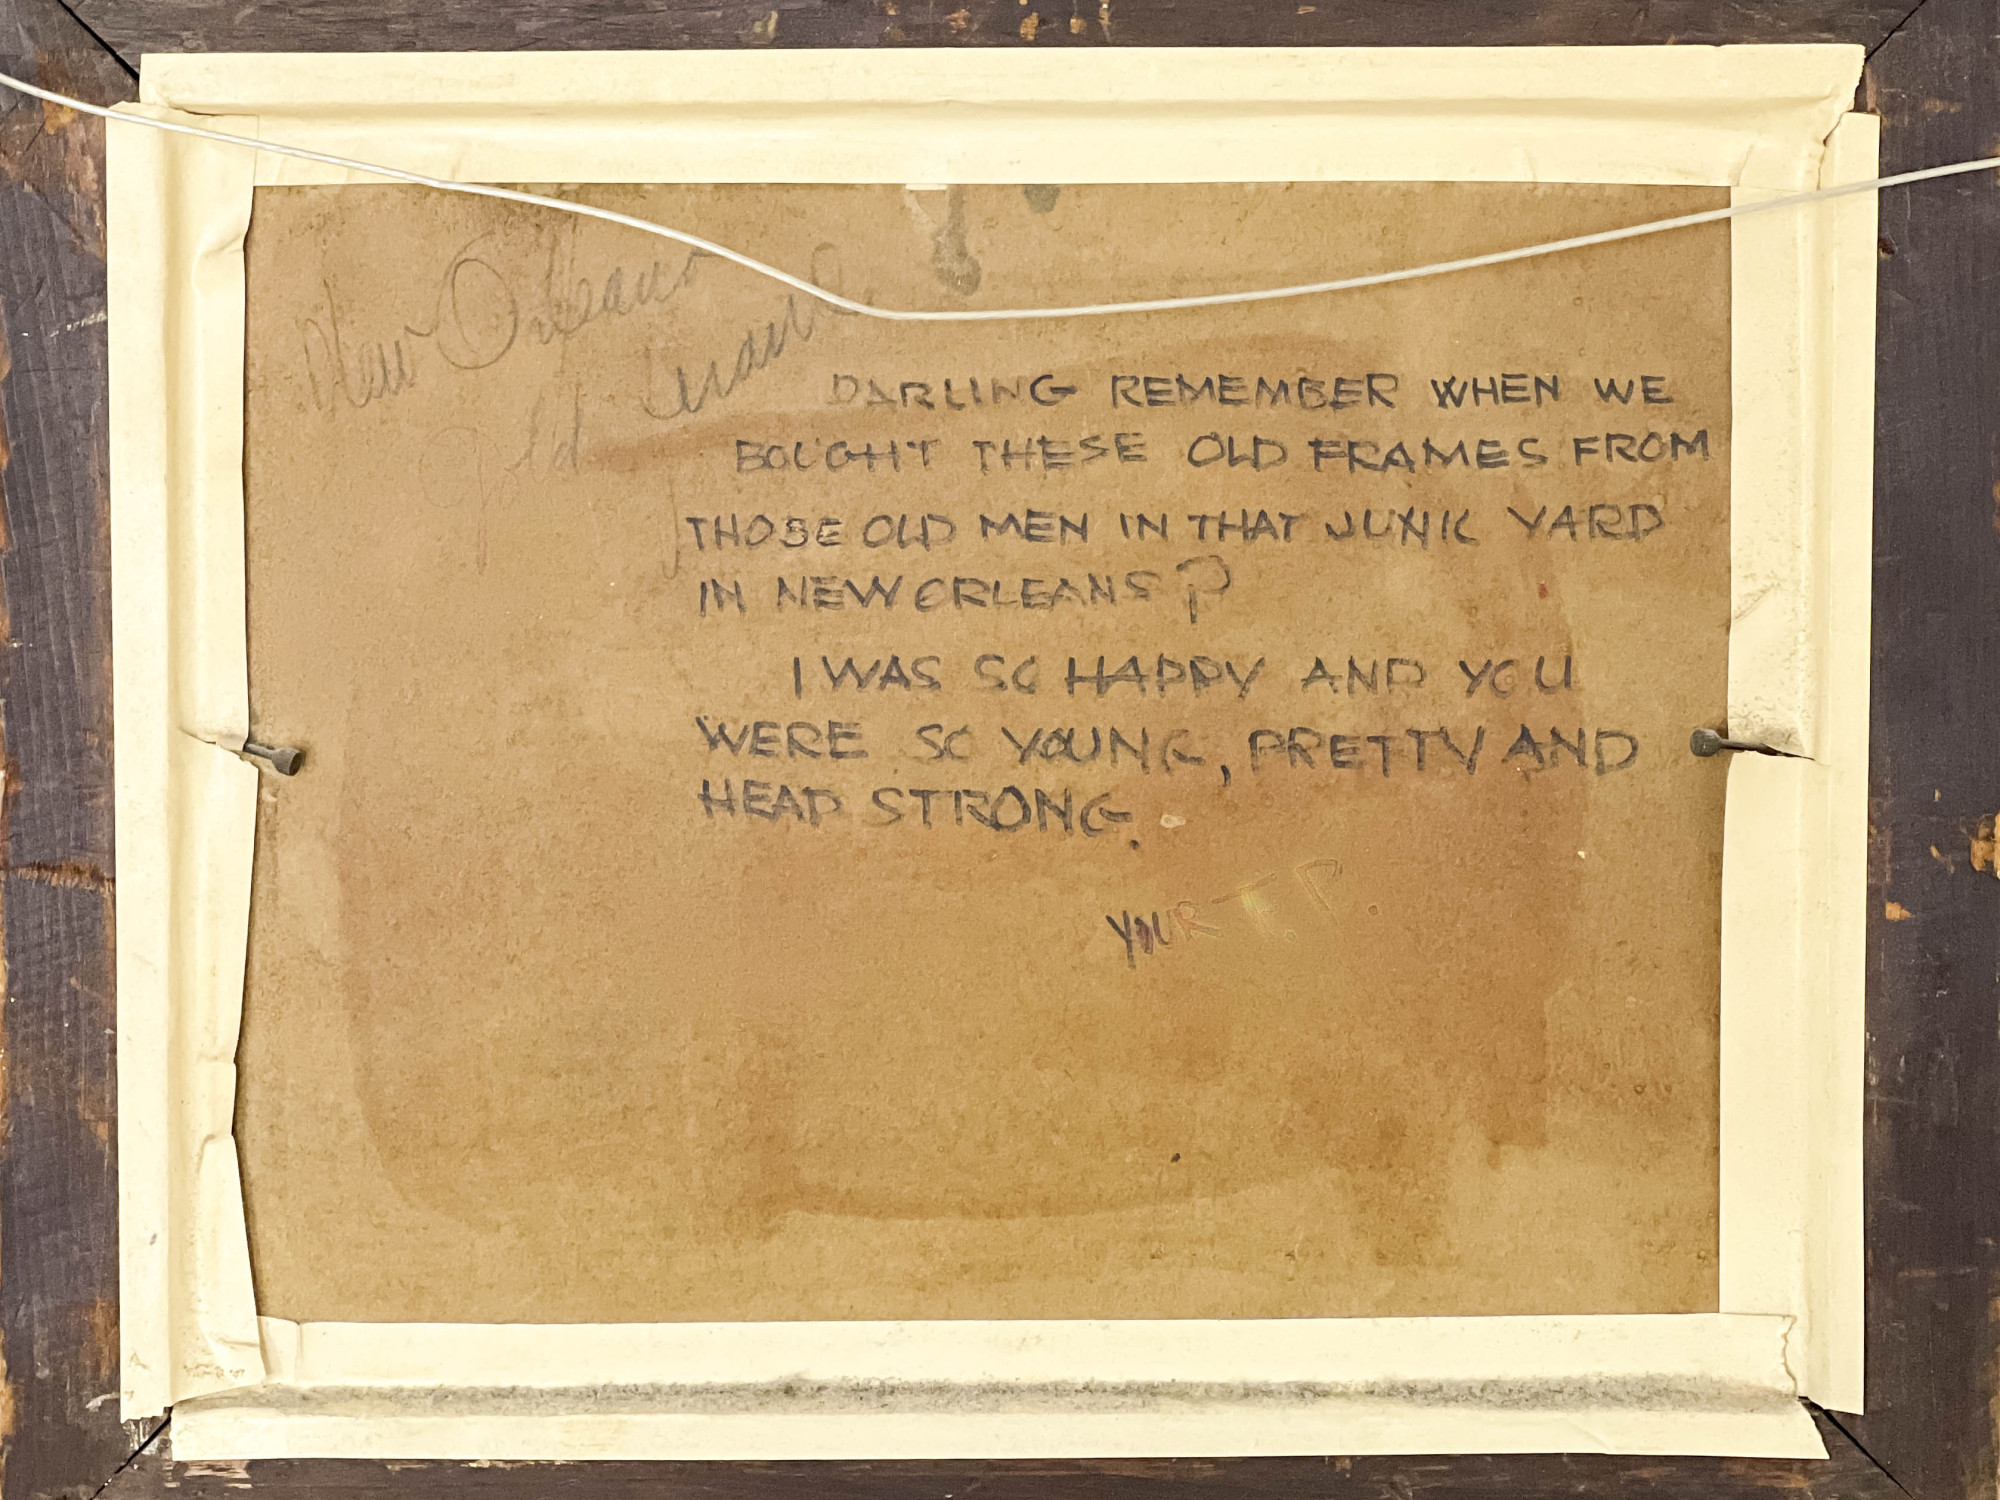 New Orleans
Gold
DARLING REMEMBER WHEN WE
BOUGHT THESE OLD FRAMES FROM
THOSE OLD MEN IN THAT JUNK YARD
IN NEW ORLEANS?
I WAS SO HAPPY AND YOU
WERE SO YOUNG, PRETTY AND
HEAD STRONG.
YOUR T.P.